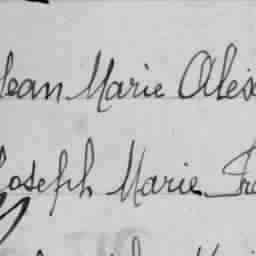 Jean Marie Alex
Joseph Marie Fra